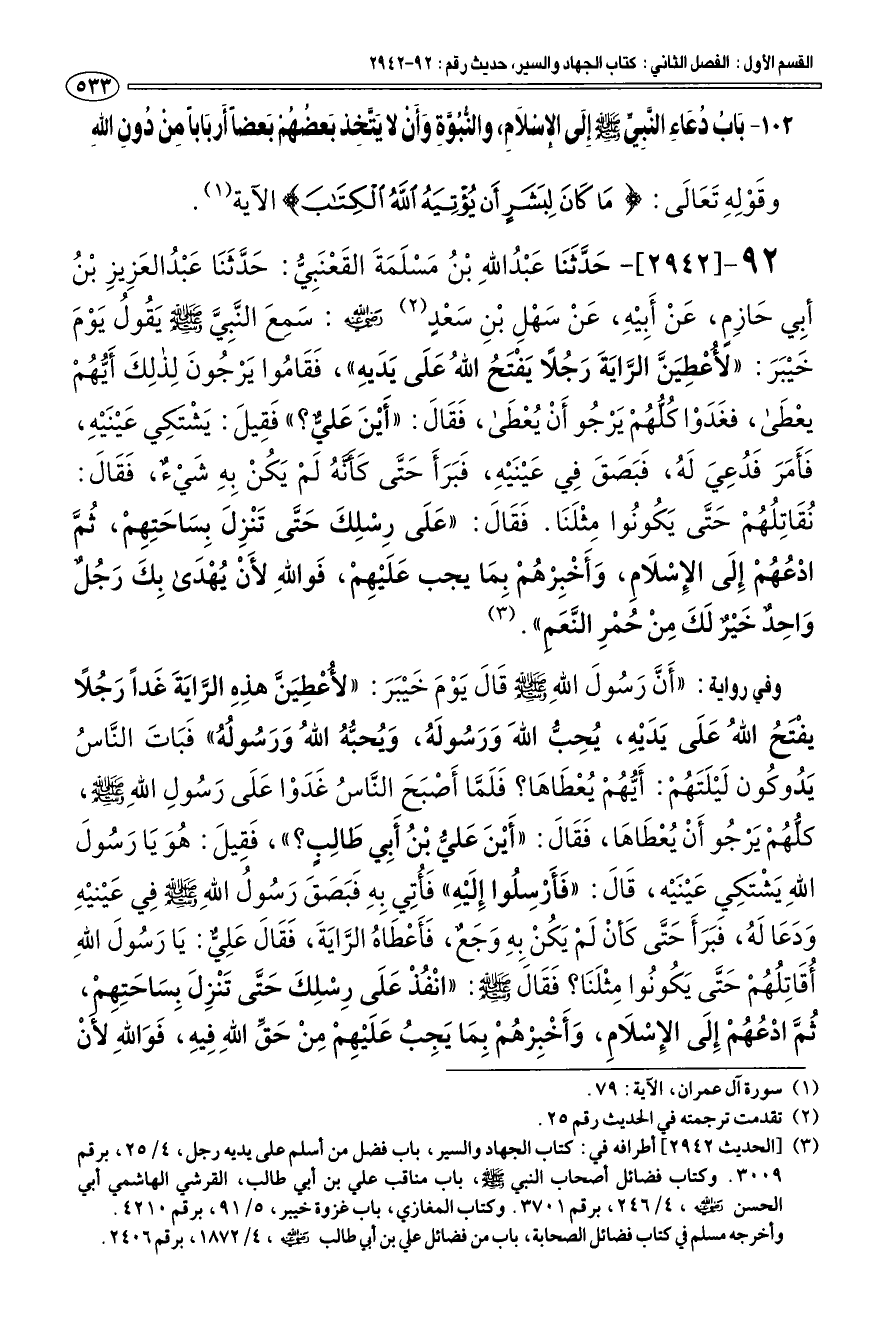 القسم الأول: الفصل الثاني: كتاب الجهاد والسير، حديث رقم: ٩٢-٢٩٤٢
٥٣٣
١٠٢- بَابُ دُعَاءِ النَّبِيِّ ﷺ إِلَى الإِسْلَامِ، والنُّبُوَّةِ وَأَنْ لا يَتَّخِذ بَعضُهُمْ بَعضاً أَربَاباً مِنْ دُونِ اللهِ
وقَوْلِهِ تَعَالَى: ﴿ مَا كَانَ لِبَشَرٍ أَن يُؤْتِيَهُ ٱللَّهُ ٱلْكِتَٰبَ﴾ الآية(١).
٩٢-[٢٩٤٢]- حَدَّثَنَا عَبْدُاللهِ بْنُ مَسْلَمَةَ القَعْنَبِيُّ: حَدَّثَنَا عَبْدُالعَزِيزِ بْنُ
أبي حَازِمٍ، عَنْ أَبِيْهِ، عَنْ سَهْلِ بْنِ سَعْدٍ(٢) رضي الله عنه: سَمِعَ النَّبِيَّ ﷺ يَقُولُ يَوْمَ
خَيْبَرَ: «لأُعْطِيَنَّ الرَّايَةَ رَجُلًا يَفْتَحُ اللهُ عَلَى يَدَيهِ»، فَقَامُوا يَرْجُونَ لِذٰلِكَ أَيُّهُمْ
يعْطَىٰ، فغَدَوْا كُلُّهُمْ يَرْجُو أَنْ يُعْطَىٰ، فَقَالَ: «أَيْنَ عَليٌّ؟» فَقِيلَ: يَشْتَكِي عَيْنَيْهِ،
فَأَمَرَ فَدُعِيَ لَهُ، فَبَصَقَ فِي عَيْنَيْهِ، فَبَرَأَ حَتَّى كَأَنَّهُ لَمْ يَكُنْ بِهِ شَيْءٌ، فَقَالَ:
نُقَاتِلُهُمْ حَتَّى يَكُونُوا مِثْلَنَا. فَقَالَ: «عَلَى رِسْلِكَ حَتَّى تَنْزِلَ بِسَاحَتِهِمْ، ثُمَّ
ادْعُهُمْ إِلَى الإِسْلَامِ، وَأَخْبِرْهُمْ بِمَا يجب عَلَيْهِمْ، فَواللهِ لأَنْ يُهْدَىٰ بِكَ رَجُلٌ
وَاحِدٌ خَيْرٌ لَكَ مِنْ حُمْرِ النَّعَمِ».(٣)
وفي رواية: «أَنَّ رَسُولَ اللهِ ﷺ قَالَ يَوْمَ خَيْبَرَ: «لأُعْطِيَنَّ هذِهِ الرَّايَةَ غَداً رَجُلًا
يفْتَحُ اللهُ عَلَى يَدَيْهِ، يُحِبُّ اللهَ وَرَسُولَهُ، وَيُحبُّهُ اللهُ وَرَسُولُهُ» فَبَاتَ النَّاسُ
يَدُوكُون لَيْلَتَهُمْ: أَيُّهُمْ يُعْطَاهَا؟ فَلَمَّا أَصْبَحَ النَّاسُ غَدَوْا عَلَى رَسُولِ اللهِ ﷺ،
كلُّهُمْ يَرْجُو أَنْ يُعْطَاهَا، فَقَالَ: «أَيْنَ عَليُّ بْنُ أَبِي طَالِبٍ؟»، فَقِيلَ: هُوَ يَا رَسُولَ
اللهِ يَشْتَكِي عَيْنَيْه، قَالَ: «فَأَرْسِلُوا إِلَيْهِ» فَأُتِي بِهِ فَبَصَقَ رَسُولُ اللهِ ﷺ فِي عَيْنيْهِ
وَدَعَا لَهُ، فَبَرَأَ حَتَّى كَأنْ لَمْ يَكُنْ بِهِ وَجَعٌ، فَأَعْطَاهُ الرَّايَةَ، فَقَالَ عَلِيٌّ: يَا رَسُولَ اللهِ
أُقَاتِلُهُمْ حَتَّى يَكُونُوا مِثْلَنَا؟ فَقَالَ ﷺ: «انْفُذْ عَلَى رِسْلِكَ حَتَّى تَنْزِلَ بِسَاحَتِهِمْ،
ثُمَّ ادْعُهُمْ إِلَى الإِسْلَامِ، وَأَخْبِرْهُمْ بِمَا يَجِبُ عَلَيْهِمْ مِنْ حَقِّ اللهِ فِيهِ، فَوَاللهِ لأَنْ
(١) سورة آل عمران، الآية: ٧٩.
(٢) تقدمت ترجمته في الحديث رقم ٢٥.
(٣) [الحديث ٢٩٤٢] أطرافه في: كتاب الجهاد والسير، باب فضل من أسلم على يديه رجل، ٤/ ٢٥، برقم
٣٠٠٩. وكتاب فضائل أصحاب النبي ﷺ، باب مناقب علي بن أبي طالب، القرشي الهاشمي أبي
الحسن رضي الله عنه، ٤/ ٢٤٦، برقم ٣٧٠١. وكتاب المغازي، باب غزوة خيبر، ٥/ ٩١، برقم ٤٢١٠.
وأخرجه مسلم في كتاب فضائل الصحابة، باب من فضائل علي بن أبي طالب رضي الله عنه، ٤/ ١٨٧٢، برقم ٢٤٠٦.